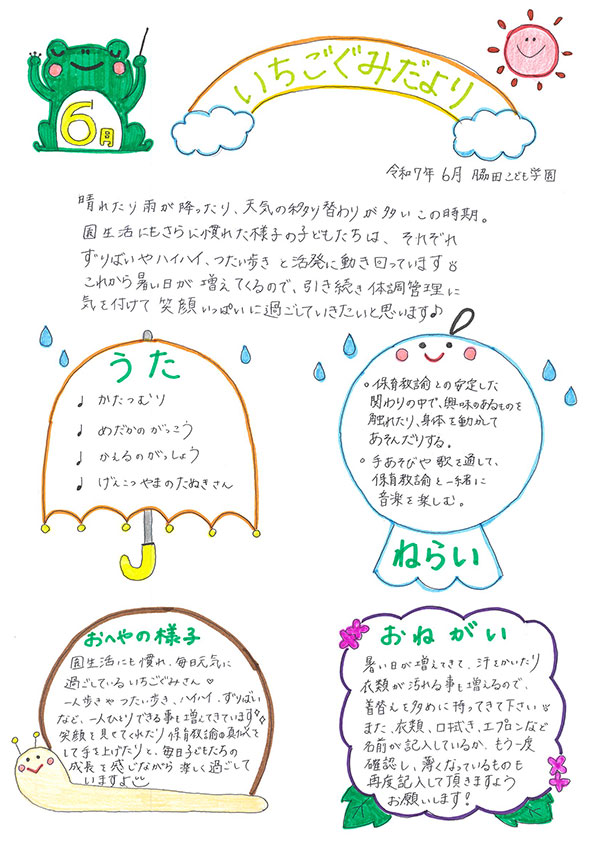 いちごぐみだより
6月
令和7年 6月 脇田こども学園
晴れたり雨が降ったり、天気の移り替わりが多いこの時期。
園生活にもさらに慣れた様子の子どもたちは、それぞれ
ずりばいやハイハイ、つたい歩きと活発に動き回っています
これから暑い日が増えてくるので、引き続き体調管理に
気を付けて笑顔いっぱいに過ごしていきたいと思います♪
うた
♩ かたつむり
♩ めだかのがっこう
♩ かえるのがっしょう
♩ げんこつやまのたぬきさん
。保育教諭との安定した
関わりの中で、興味のあるものを
触れたり、身体を動かして
あそんだりする。
。手あそびや歌を通して、
保育教諭と一緒に
音楽を楽しむ。
ねらい
おへやの様子
園生活にも慣れ、毎日元気に
過ごしているいちごぐみさん♡
一人歩きやつたい歩き、ハイハイ、ずりばい
など、一人ひとりできる事も増えてきています
笑顔を見せてくれたり保育教諭の真似を
して手を上げたりと、毎日子どもたちの
成長を感じながら楽しく過ごして
いますよ
おねがい
暑い日が増えてきて、汗をかいたり
衣類が汚れる事も増えるので、
着替えを多めに持ってきて下さい
また、衣類、口拭き、エプロンなど
名前が記入しているか、もう一度
確認し、薄くなっているものも
再度記入して頂きますよう
お願いします!